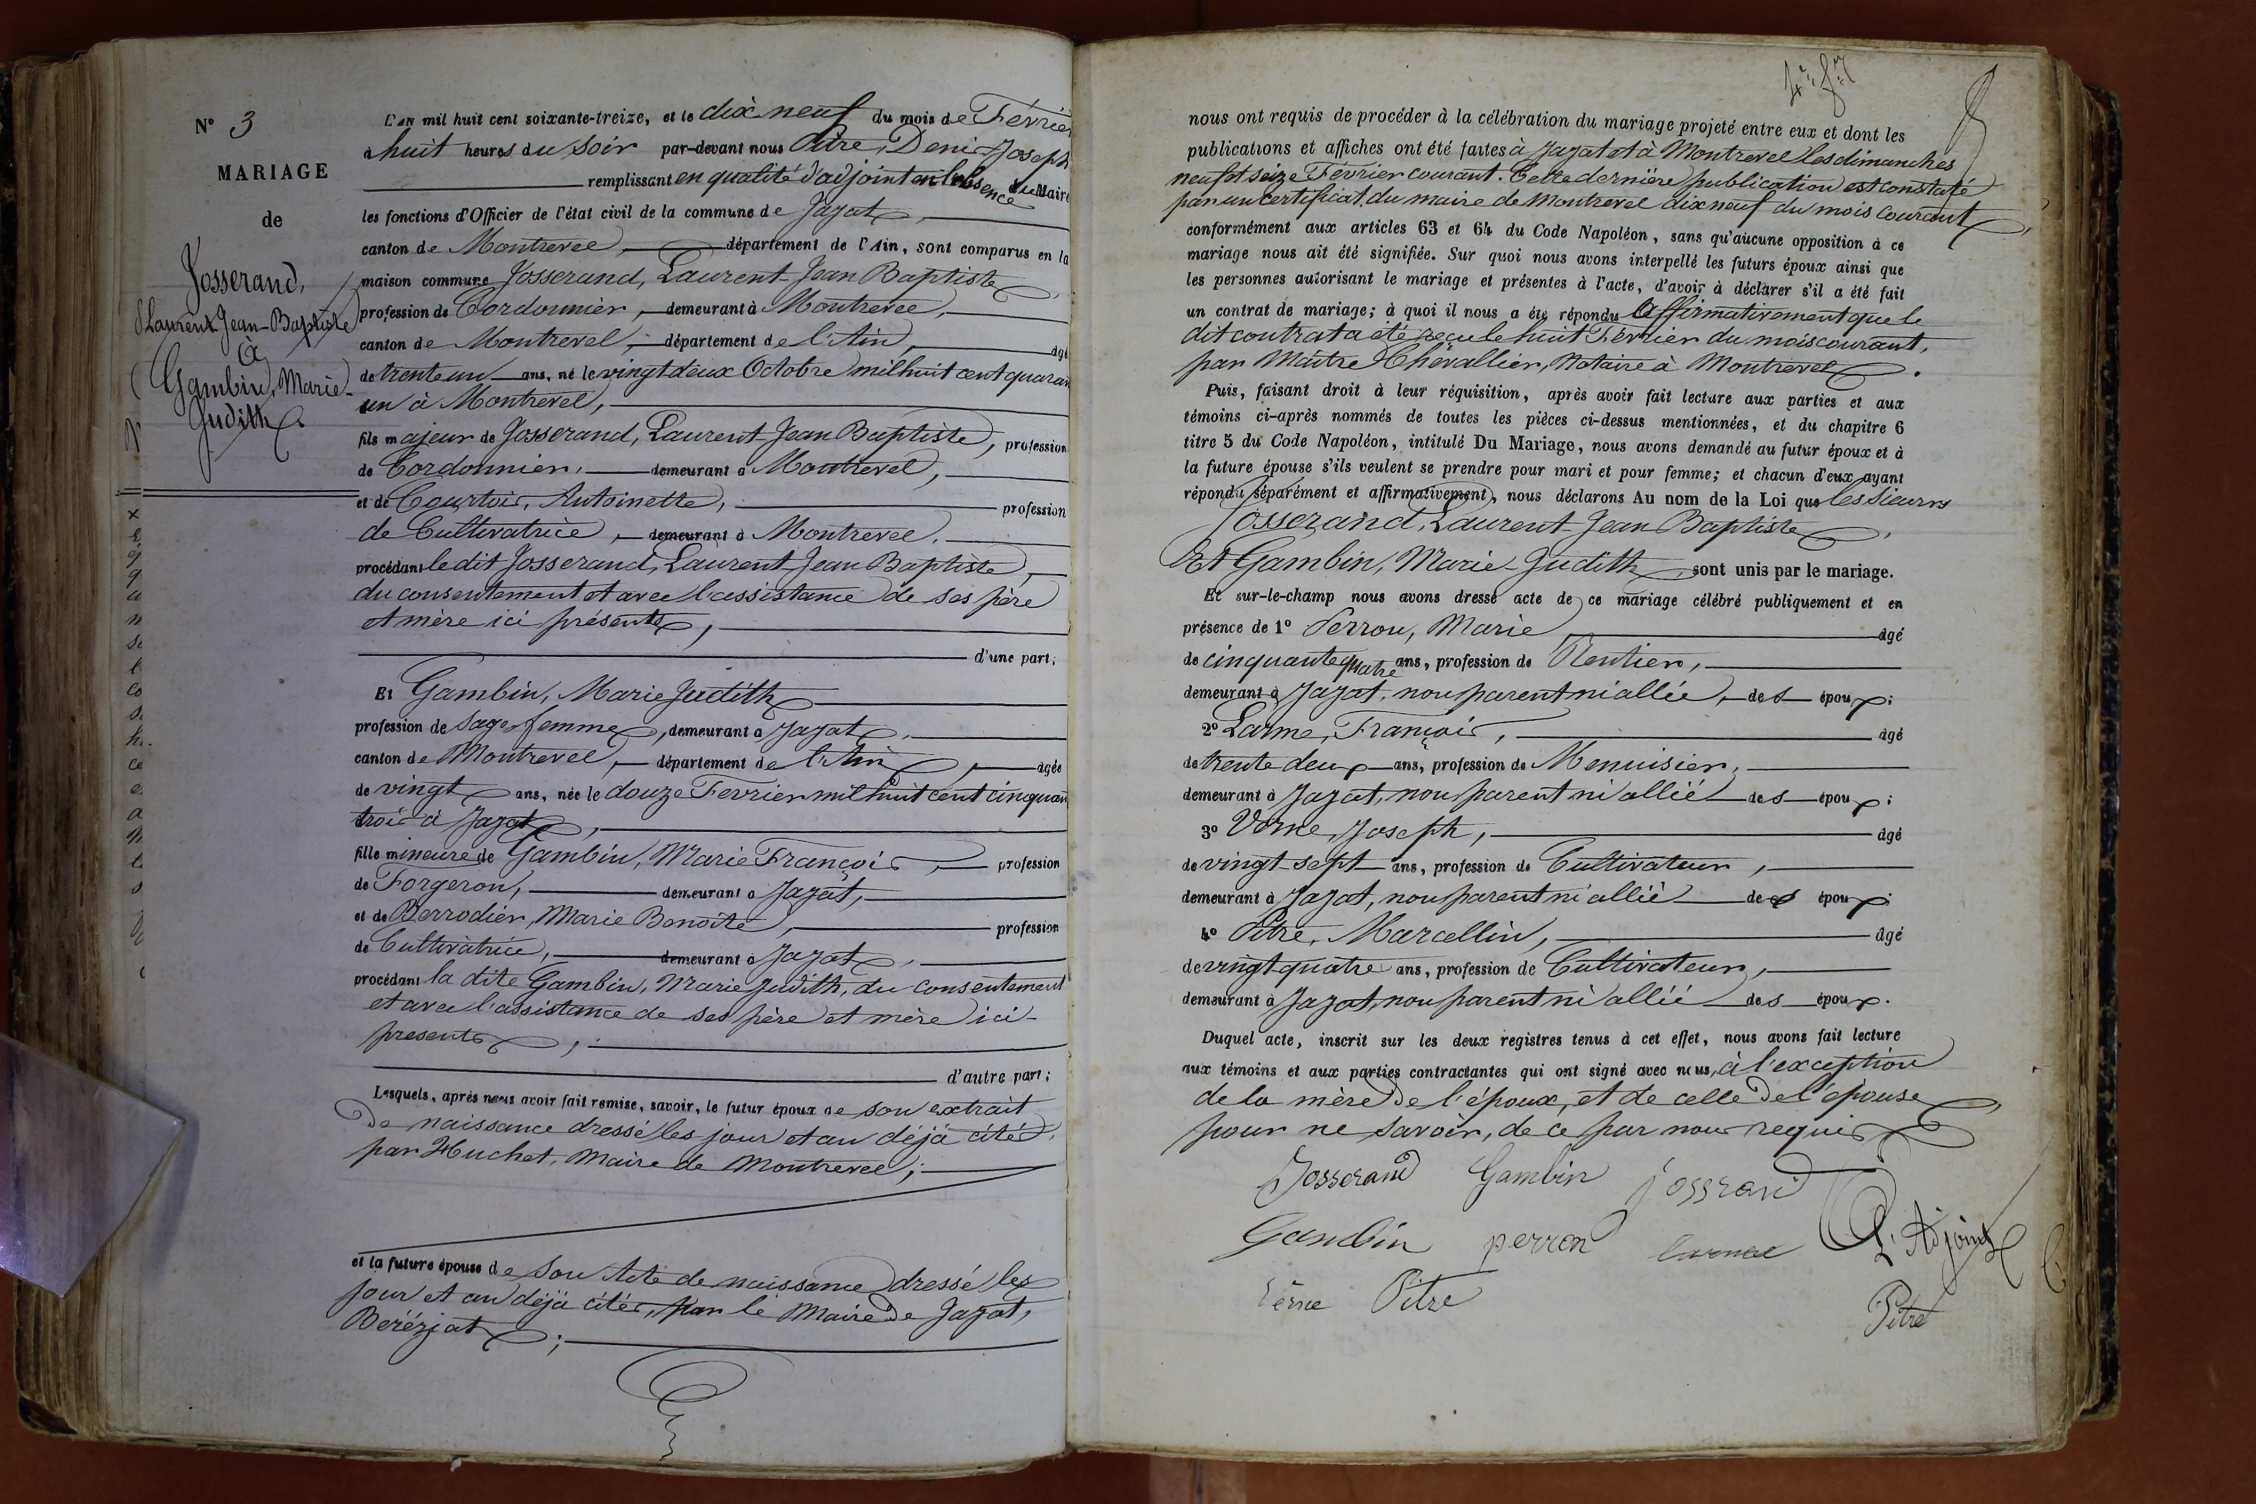 N° 3
MARIAGE
de
Josserand,
Laurent Jean-Baptiste
à
Gambin, Marie-
Judith
L'an mil huit cent soixante-treize, et le dix neuf du mois de Février
à huit heures du soir par-devant nous Pitre, Denis Joseph
remplissant en qualité d'adjoint en l'absence du Maire
les fonctions d'Officier de l'état civil de la commune de Jayat,
canton de Montrevel, département de l'Ain, sont comparus en la
maison commune Josserand, Laurent Jean Baptiste,
profession de Cordonnier, demeurant à Montrevel,
canton de Montrevel, département de l'Ain, âgé
de trente un ans, né le vingt deux Octobre mil huit cent quaran
un à Montrevel,
fils majeur de Josserand, Laurent Jean Baptiste, profession
de Cordonnier, demeurant à Montrevel,
et de Courtois, Antoinette, profession
de Cultivatrice, demeurant à Montrevel.
procédant le dit Josserand, Laurent Jean Baptiste,
du consentement et avec l'assistance de ses père
et mère ici présents,
d'une part;
Et Gambin, Marie Judith
profession de sage femme, demeurant à Jayat,
canton de Montrevel, département de l'Ain, âgée
de vingt ans, née le douze Fevrier mil huit cent cinquan
trois à Jayat,
fille mineure de Gambin, Marie François, profession
de Forgeron, demeurant à Jayat,
et de Berrodier, Marie Benoîte, profession
de Cultivatrice, demeurant à Jayat,
procédant la dite Gambin, Marie Judith, du consentement
et avec l'assistance de ses père et mère ici
presents,
d'autre part;
Lesquels, après nous avoir fait remise, savoir, le futur époux de son extrait
de naissance dressé les jour et an déjà cités,
par Huchet, Maire de Montrevel;
et la future épouse de son Acte de naissance dressé les
jour et an déjà cités, par le Maire de Jayat,
Beréziat;
nous ont requis de procéder à la célébration du mariage projeté entre eux et dont les
publications et affiches ont été faites à Jayat et à Montrevel les dimanches
neuf et seize Février courant. Cette dernière publication est constaté
par un certificat du maire de Montrevel dix neuf du mois courant,
conformément aux articles 63 et 64 du Code Napoléon, sans qu'aucune opposition à ce
mariage nous ait été signifiée. Sur quoi nous avons interpellé les futurs époux ainsi que
les personnes autorisant le mariage et présentes à l'acte, d'avoir à déclarer s'il a été fait
un contrat de mariage; à quoi il nous a été répondu Affirmativement que le
dit contrat a été reçu le huit Février du mois courant,
par Maître Chevallier, Notaire à Montrevel.
Puis, faisant droit à leur réquisition, après avoir fait lecture aux parties et aux
témoins ci-après nommés de toutes les pièces ci-dessus mentionnées, et du chapitre 6
titre 5 du Code Napoléon, intitulé Du Mariage, nous avons demandé au futur époux et à
la future épouse s'ils veulent se prendre pour mari et pour femme; et chacun d'eux ayant
répondu séparément et affirmativement, nous déclarons Au nom de la Loi que les sieurs
Josserand, Laurent Jean Baptiste,
Et Gambin, Marie-Judith, sont unis par le mariage.
Et sur-le-champ nous avons dressé acte de ce mariage célébré publiquement et en
présence de 1° Perron, Marie âgé
de cinquante quatre ans, profession de Rentier,
demeurant à Jayat, non parent ni allié, des époux;
2° Larme, François, âgé
de trente deux ans, profession de Menuisier,
demeurant à Jayat, non parent ni allié des époux;
3° Verne, Joseph, âgé
de vingt sept ans, profession de Cultivateur,
demeurant à Jayat, non parent ni allié des époux;
4° Pitre, Marcellin, âgé
de vingt quatre ans, profession de Cultivateur,
demeurant à Jayat, non parent ni allié des époux.
Duquel acte, inscrit sur les deux registres tenus à cet effet, nous avons fait lecture
aux témoins et aux parties contractantes qui ont signé avec nous, à l'exception
de la mère de l'époux, et de celle de l'épouse
pour ne savoir, de ce par nous requis
Josserand Gambin josserand
Gambin perron larme L'Adjoint
Verne Pitre Pitre